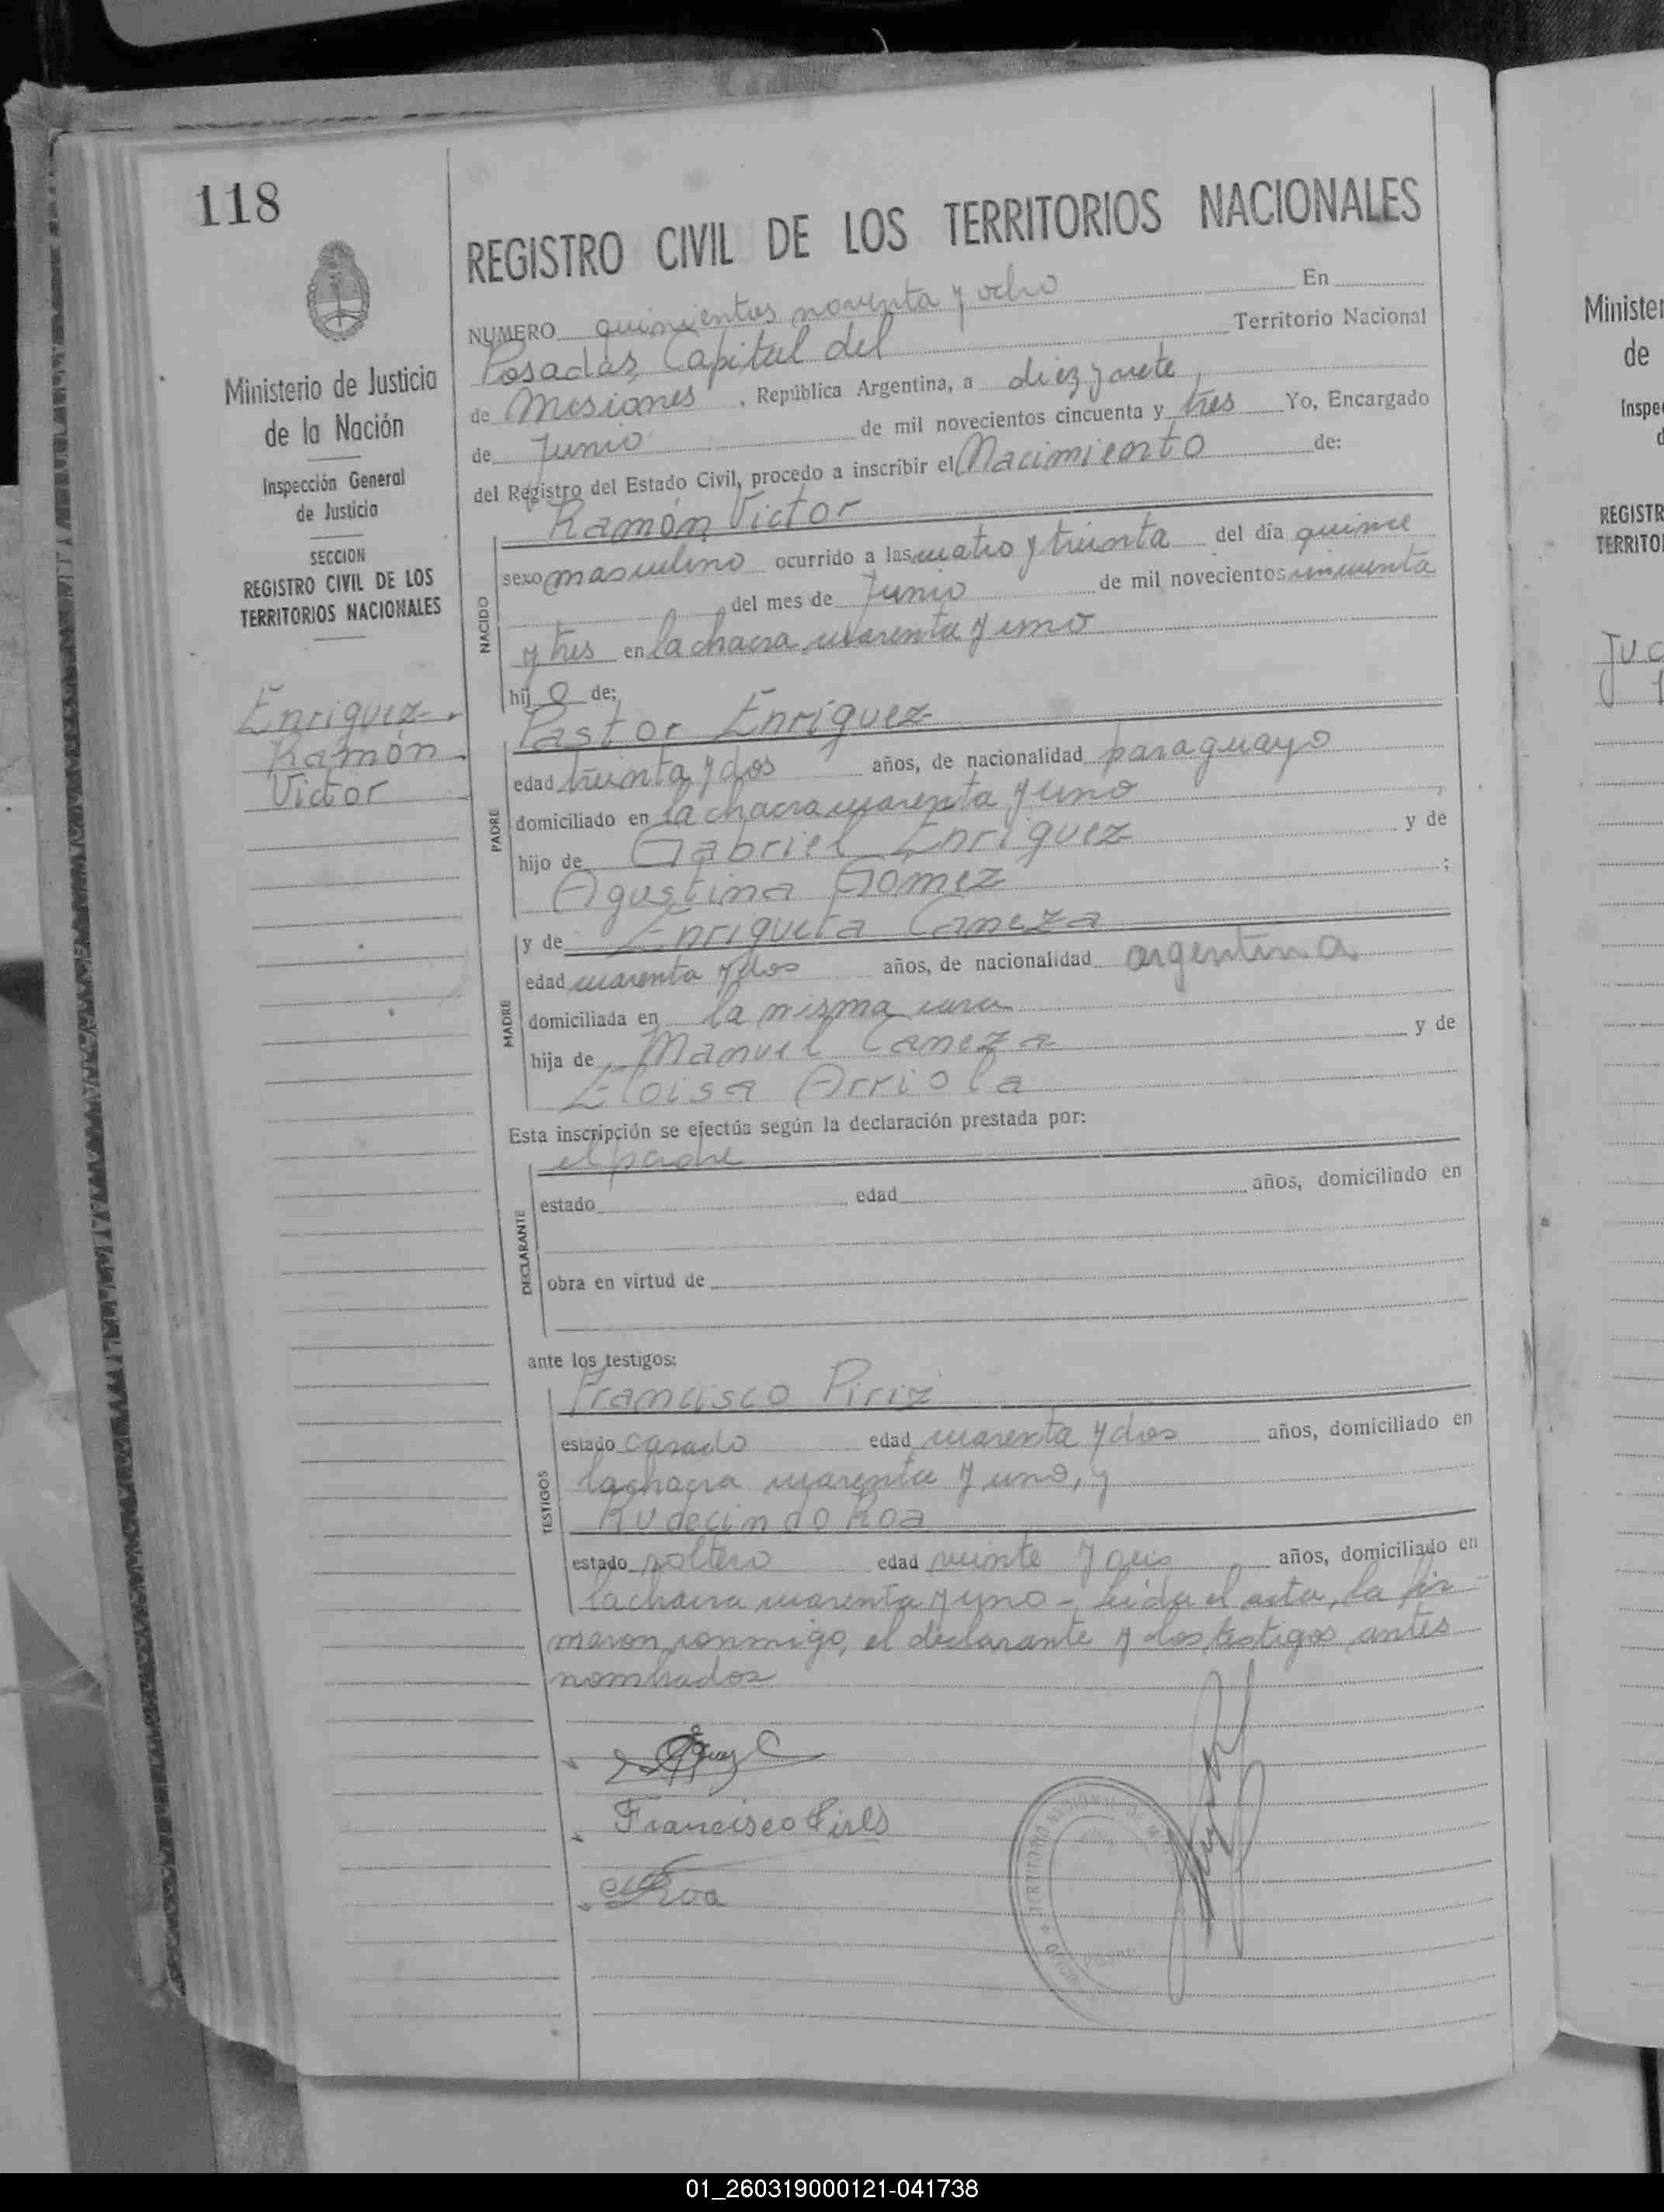 118
Ministerio de Justicia
de la Nación
Inspección General
de Justicia
SECCION
REGISTRO CIVIL DE LOS
TERRITORIOS NACIONALES
Enriquez
Ramón
Victor
REGISTRO CIVIL DE LOS TERRITORIOS NACIONALES
NUMERO quinientos noventa y ocho En
Posadas, Capital del Territorio Nacional
de Misiones, República Argentina, a diez y siete
de Junio de mil novecientos cincuenta y tres Yo, Encargado
del Registro del Estado Civil, procedo a inscribir el Nacimiento de:
Ramón Victor
NACIDO
sexo masculino ocurrido a las cuatro y treinta del día quince
del mes de Junio de mil novecientos cincuenta
y tres en la chacra cuarenta y uno
hijo de:
Pastor Enriquez
PADRE
edad treinta y dos años, de nacionalidad paraguayo
domiciliado en la chacra cuarenta y uno,
hijo de Gabriel Enriquez y de
Agustina Gomez;
y de Enriqueta Caneza
MADRE
edad cuarenta y dos años, de nacionalidad argentina
domiciliada en la misma casa
hija de Manuel Caneza y de
Eloisa Arriola
Esta inscripción se efectúa según la declaración prestada por:
el padre
DECLARANTE
estado edad años, domiciliado en
obra en virtud de
ante los testigos:
Francisco Piriz
TESTIGOS
estado casado edad cuarenta y dos años, domiciliado en
la chacra cuarenta y uno, y
Rudecindo Roa
estado soltero edad veinte y seis años, domiciliado en
la chacra cuarenta y uno - leida el acta, la fir-
maron conmigo, el declarante y los testigos antes
nombrados
Francisco Piris
Roa
TERRITORIO NACIONAL DE
Ministe
de
Inspe
REGISTR
TERRITO
01_260319000121-041738